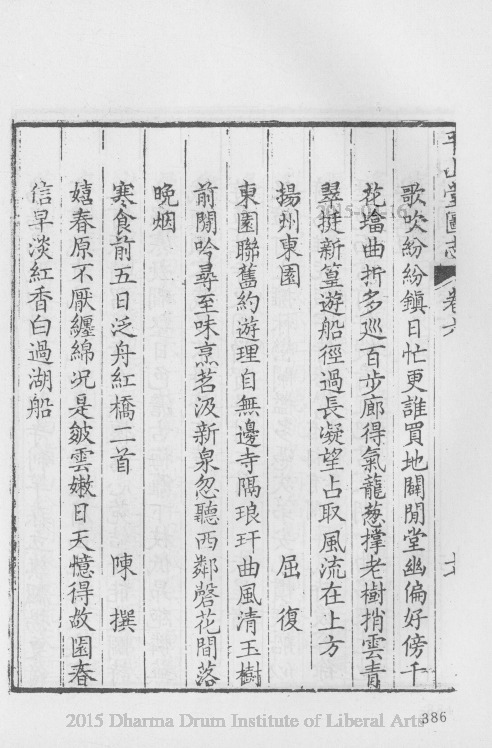 平山堂圖志 卷六
歌吹紛紛鎮日忙更誰買地闢閒堂幽偏好傍千
花墖曲折多巡百步廊得氣龍葱撑老樹捎雲青
翠挺新篁遊船徑過長凝望占取風流在上方
揚州東園 屈復
東園聯舊約遊理自無邊寺隔琅玕曲風清玉樹
前閒吟尋至味烹茗汲新泉忽聽西鄰磬花間落
晩烟
寒食前五日泛舟紅橋二首 陳撰
嬉春原不厭纏綿况是皴雲嫩日天憶得故園春
信早淡紅香白過湖船
386
2015 Dharma Drum Institute of Liberal Arts